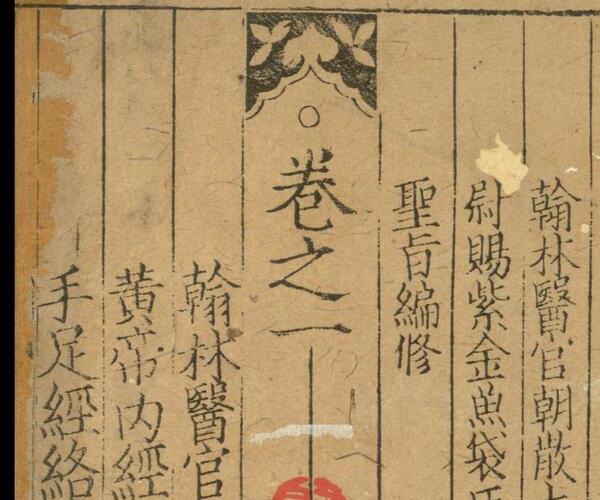 翰林醫官朝散大
尉賜紫金魚袋臣
聖旨編修
卷之一
翰林醫官
黃帝內經
手足經絡